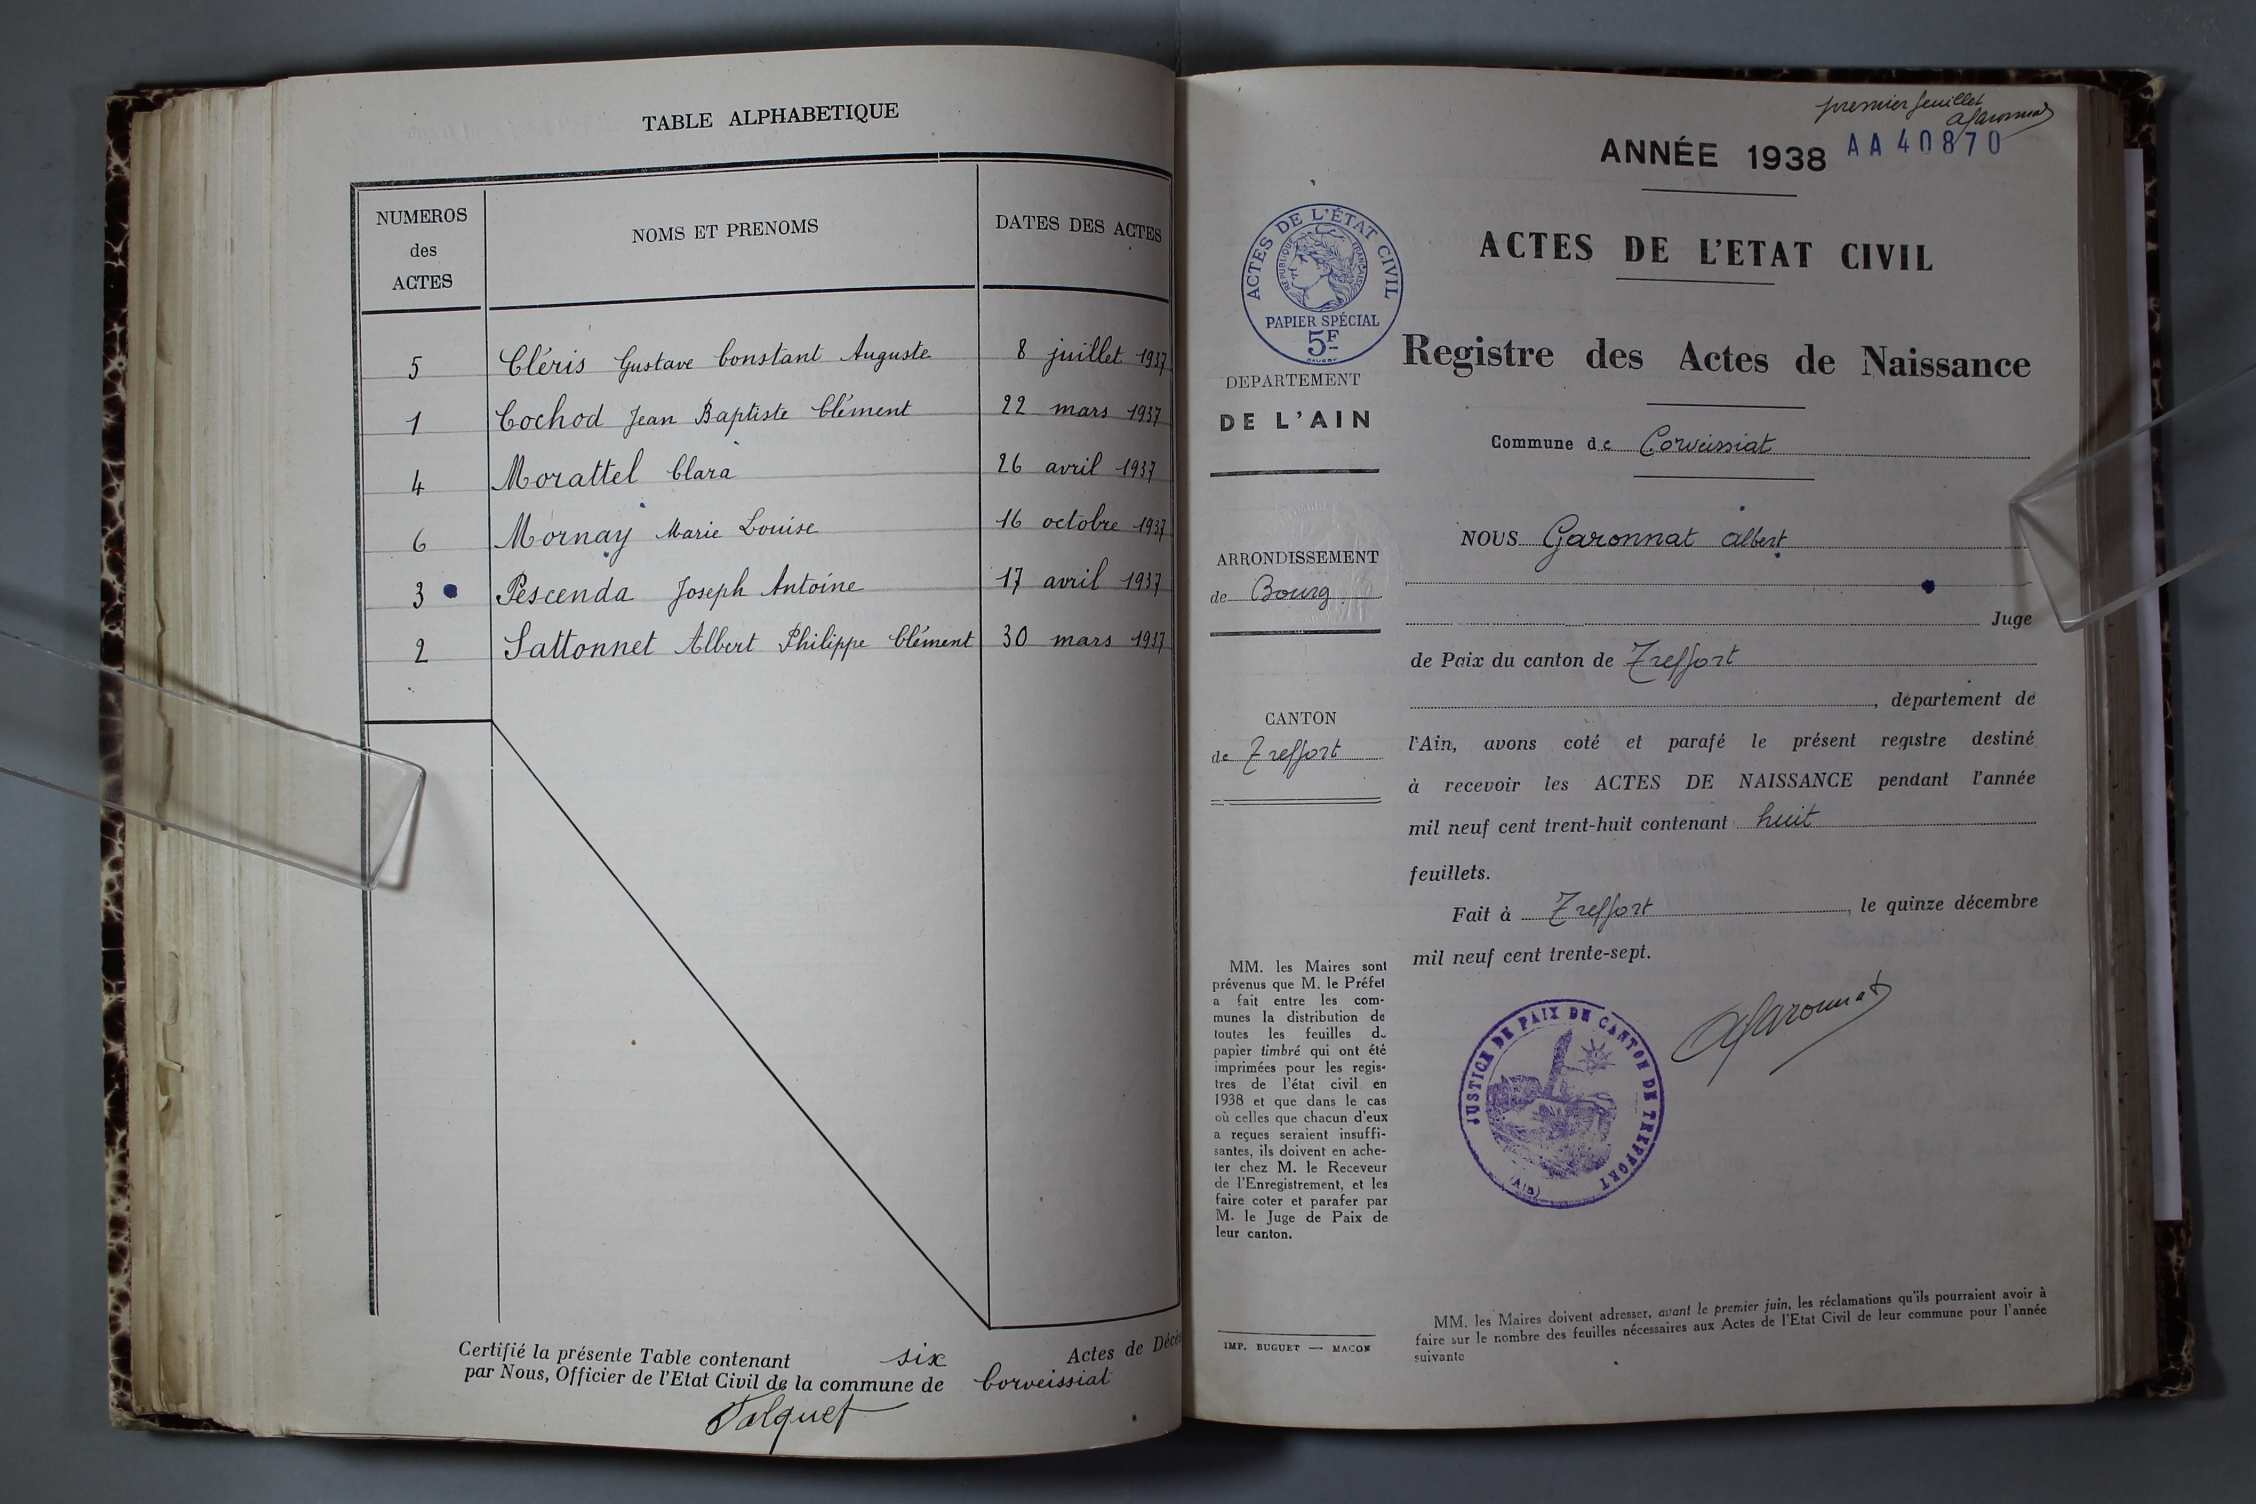 TABLE ALPHABETIQUE
NUMEROS
des
ACTES
NOMS ET PRENOMS
DATES DES ACTES
5 Cléris Gustave Constant Auguste 8 juillet 1937
1 Cochod Jean Baptiste Clément 22 mars 1937
4 Morattel Clara 26 avril 1937
6 Mornay Marie Louise 16 octobre 1937
3 Pescenda Joseph Antoine 17 avril 1937
2 Sattonnet Albert Philippe Clément 30 mars 1937
Certifié la présente Table contenant six Actes de Décè
par Nous, Officier de l'Etat Civil de la commune de Corveissiat
premier feuillet
AGaronnat
ANNÉE 1938 AA 40870
ACTES DE L'ETAT CIVIL
Registre des Actes de Naissance
Commune de Corveissiat
ACTES DE L'ÉTAT CIVIL
RÉPUBLIQUE FRANÇAISE
PAPIER SPÉCIAL
5F
DEPARTEMENT
DE L'AIN
ARRONDISSEMENT
de Bourg
CANTON
de Treffort
NOUS Garonnat Albert
Juge
de Paix du canton de Treffort
, département de
l'Ain, avons coté et parafé le présent registre destiné
à recevoir les ACTES DE NAISSANCE pendant l'année
mil neuf cent trent-huit contenant huit
feuillets.
Fait à Treffort, le quinze décembre
mil neuf cent trente-sept.
AGaronnat
JUSTICE DE PAIX DU CANTON DE TREFFORT
(AIN)
MM. les Maires sont
prévenus que M. le Préfet
a fait entre les com-
munes la distribution de
toutes les feuilles de
papier timbré qui ont été
imprimées pour les regis-
tres de l'état civil en
1938 et que dans le cas
où celles que chacun d'eux
a reçues seraient insuffi-
santes, ils doivent en ache-
ter chez M. le Receveur
de l'Enregistrement, et les
faire coter et parafer par
M. le Juge de Paix de
leur canton.
IMP. BUGUET — MACON
MM. les Maires doivent adresser, avant le premier juin, les réclamations qu'ils pourraient avoir à
faire sur le nombre des feuilles nécessaires aux Actes de l'Etat Civil de leur commune pour l'année
suivante